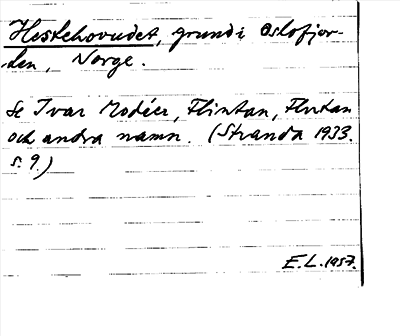 Hestehovudet, grund i Oslofjor-
den, Norge.
Se Ivar Modéer, Flintan, Flutan
och andra namn. (Stranda 1933.
s. 9.)
E.L. 1957.